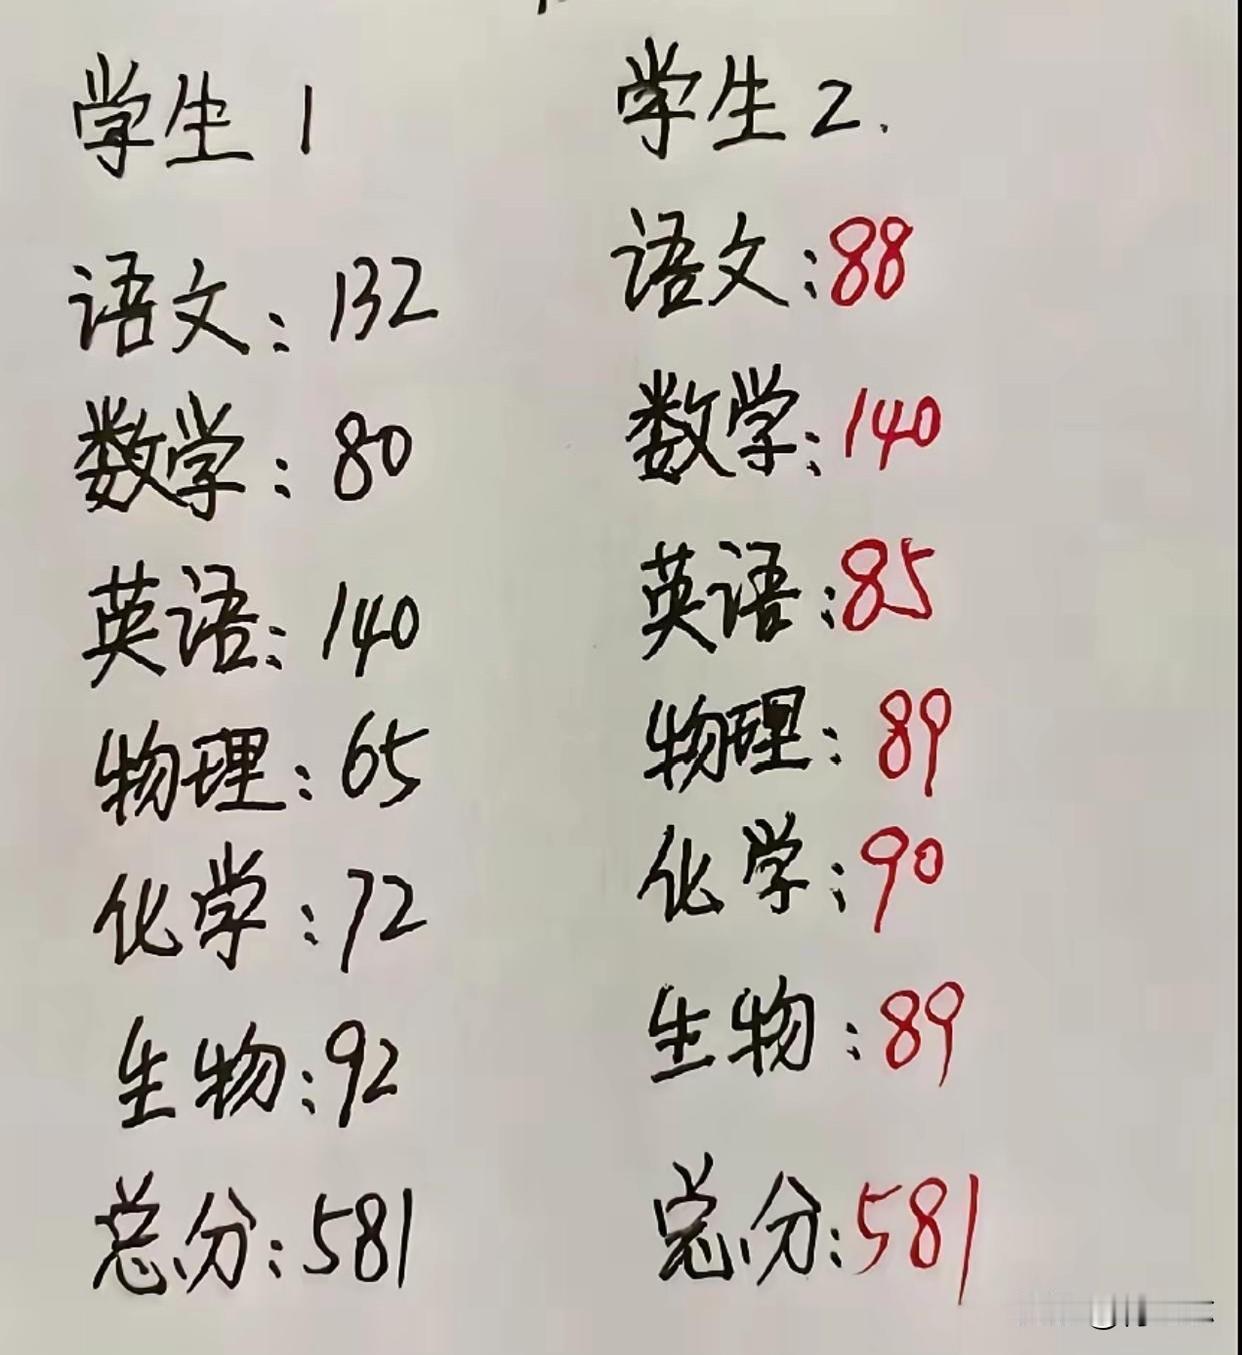 学生1
语文：132
数学：80
英语：140
物理：65
化学：72
生物：92
总分：581
学生2.
语文：88
数学：140
英语：85
物理：89
化学：90
生物：89
总分：581